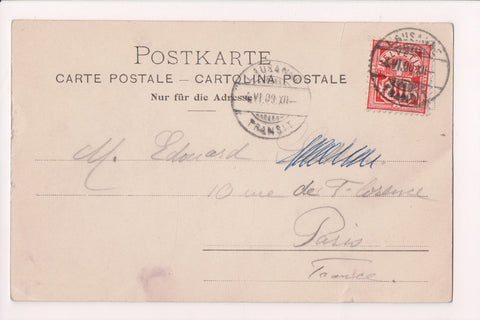 POSTKARTE
CARTE POSTALE — CARTOLINA POSTALE
Nur für die Adresse
LAUSANNE
VI.09.XII—
TRANSIT
LAUSANNE
VI.09.XII
M. Edouard
10 rue de Florence
Paris
France